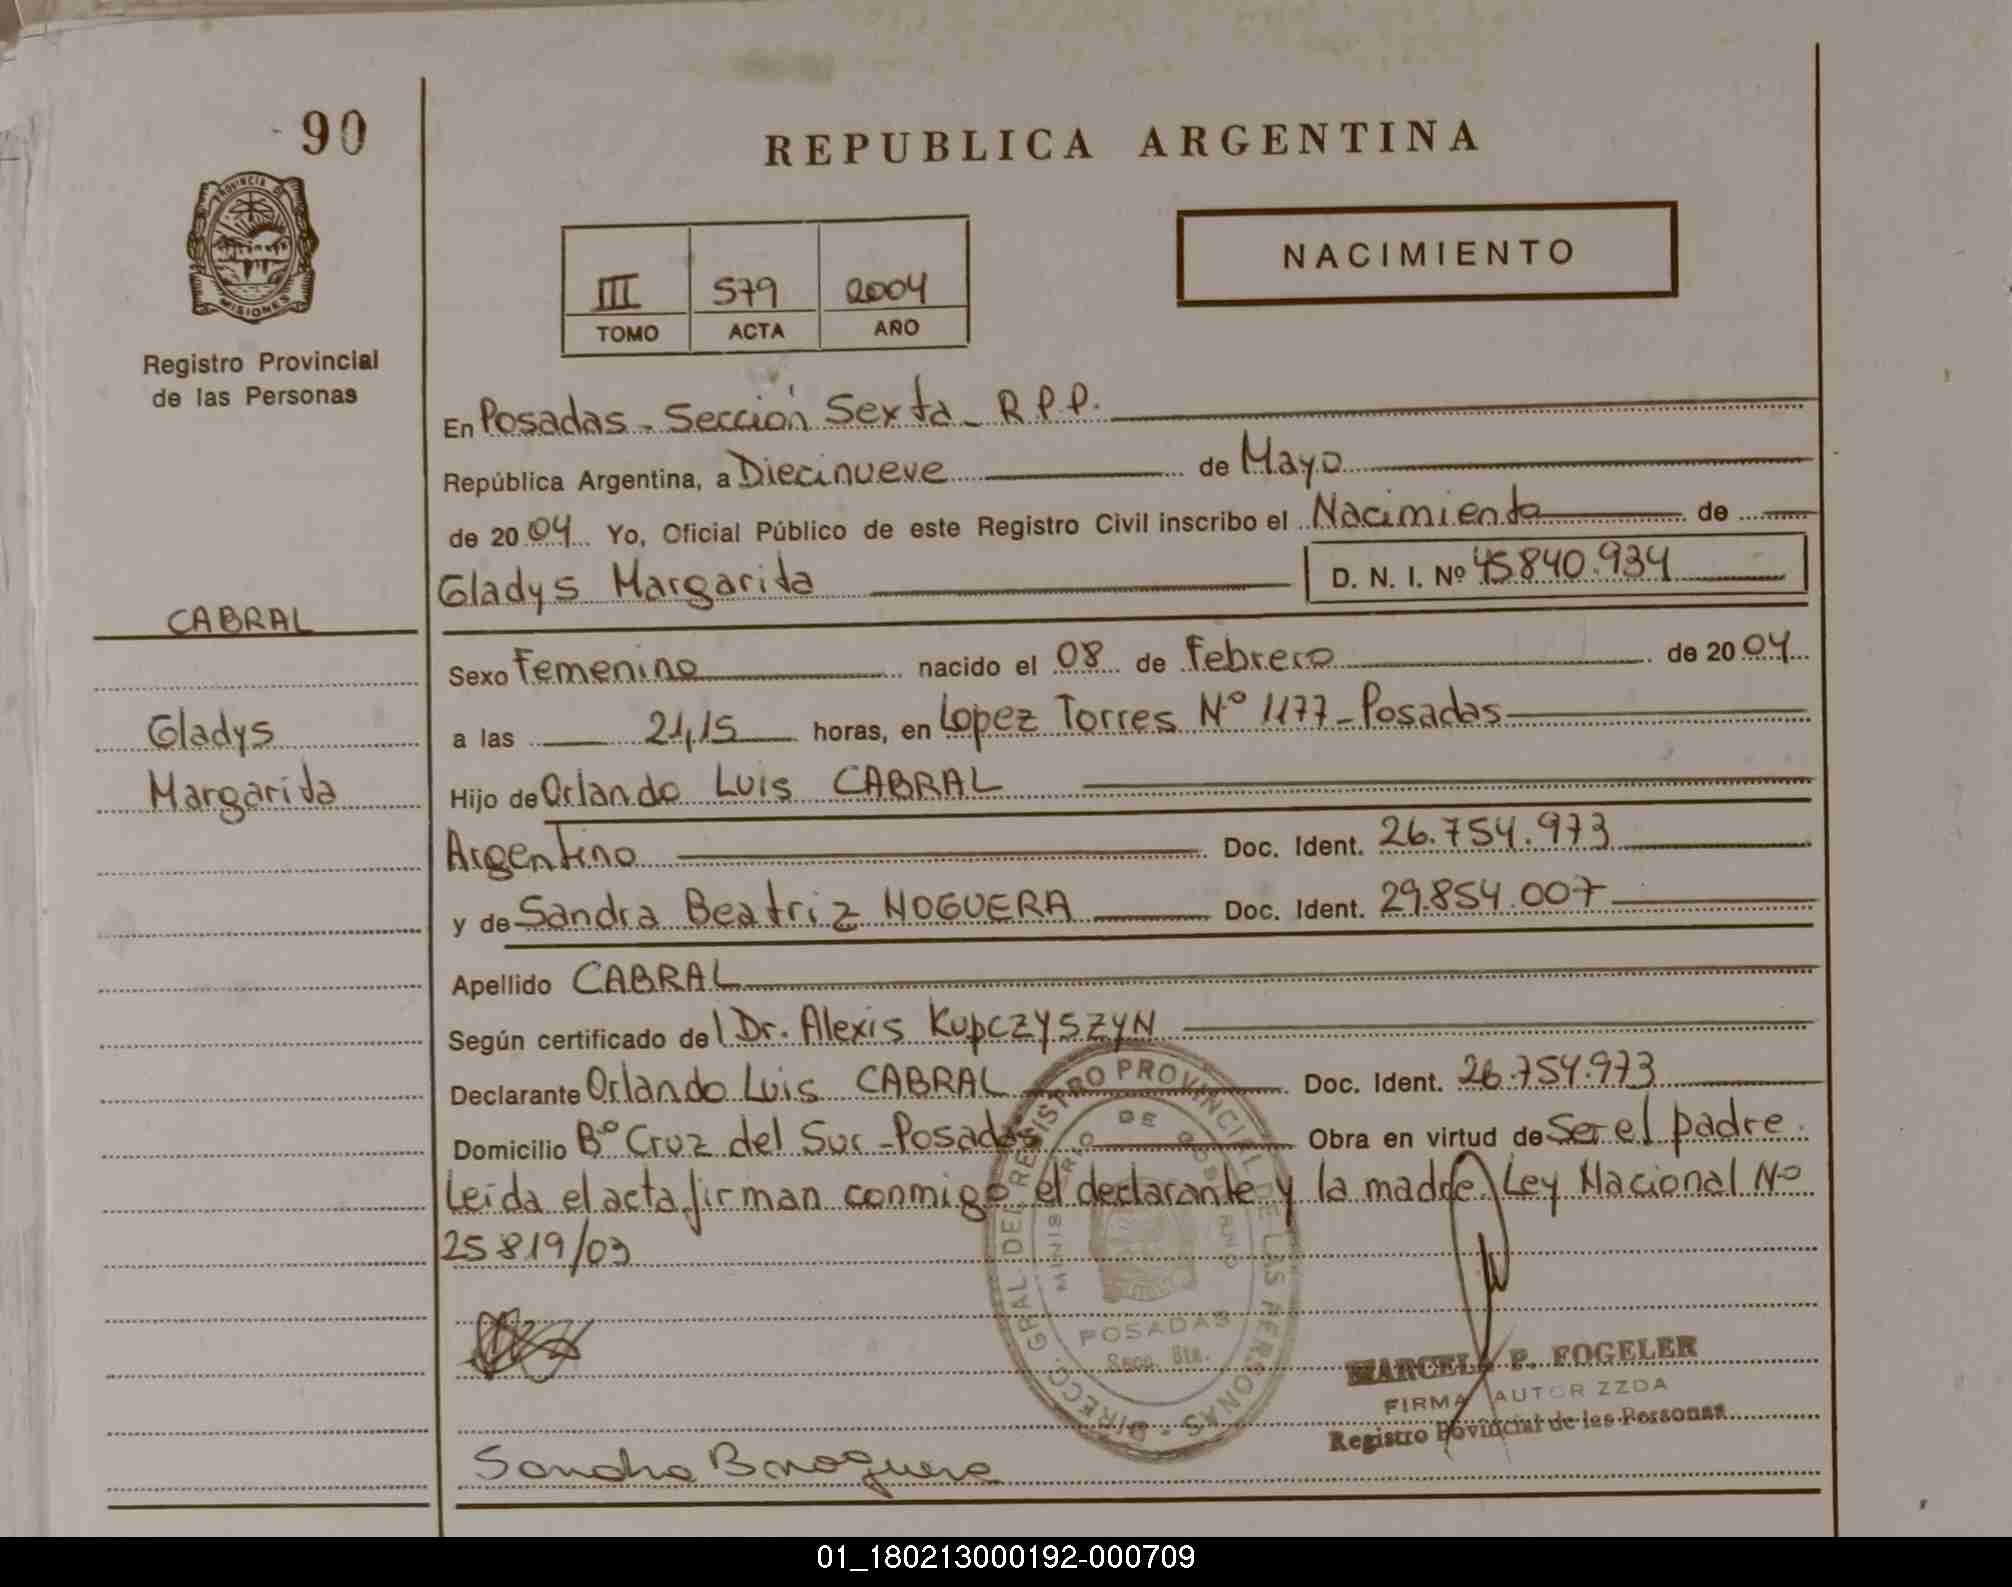 90
REPUBLICA ARGENTINA
PROVINCIA DE
MISIONES
NACIMIENTO
III 579 2004
TOMO ACTA AÑO
Registro Provincial
de las Personas
En Posadas - Sección Sexta - R.P.P.
República Argentina, a Diecinueve de Mayo
de 2004 Yo, Oficial Público de este Registro Civil inscribo el Nacimiento de
Gladys Margarita D. N. I. Nº 45.840.934
CABRAL
Sexo Femenino nacido el 08 de Febrero de 2004
Gladys
a las 21,15 horas, en Lopez Torres Nº 1177 - Posadas
Margarita
Hijo de Orlando Luis CABRAL
Argentino Doc. Ident. 26.754.973
y de Sandra Beatriz NOGUERA Doc. Ident. 29.854.007
Apellido CABRAL
Según certificado del Dr. Alexis KUPCZYSZYN
Declarante Orlando Luis CABRAL Doc. Ident. 26.754.973
Domicilio Bº Cruz del Sur - Posadas Obra en virtud de Ser el padre.
Leída el acta firman conmigo el declarante y la madre. Ley Nacional Nº
25819/03
DIRECC. GRAL DEL REGISTRO PROVINCIAL DE LAS PERSONAS
MINISTERIO DE GOBIERNO
POSADAS
Secc. 6ta.
MARCELA P. FOGELER
FIRMA AUTORIZZDA
Registro Povincial de las Personas
Sandra B Noguera
01_180213000192-000709